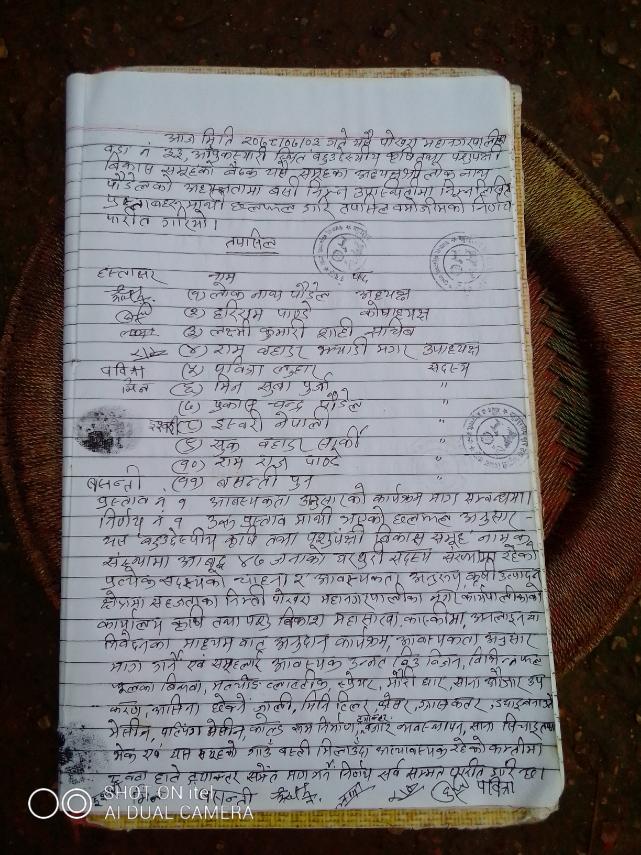 आज मिति २०७८/०७/०३ गते यसै पोखरा महानगरपालिका
वडा नं ३२, स्थित बहुउद्देश्यीय कृषि तथा पशुपंक्षी
विकास समूहको बैठक यसै समूहका अध्यक्ष श्री लोक नाथ
पौडेलको अध्यक्षतामा बसी निम्न उपस्थितीमा निम्न
प्रस्तावहरु माथी छलफल गरि तपसिल बमोजिमका निर्णय
पारीत गरियो।
तपसिल
हस्ताक्षर नाम पद
(१) लोक नाथ पौडेल अध्यक्ष
(२) हरिराम पाण्डे कोषाध्यक्ष
(३) लक्ष्मी कुमारी शाही सचिब
(४) राम बहादुर मगर उपाध्यक्ष
पवित्रा (५) पवित्रा लुहार सदस्य
मिन (६) मिन सुबा पुर्जा "
(७) प्रकाश चन्द्र पौडेल "
(८) इश्वरी नेपाली "
(९) सुक बहादुर सार्की "
(१०) राम राज पाण्डे "
बसन्ती (११) बसन्ती पुन "
प्रस्ताव नं १ आवश्यकता अनुसारको कार्यक्रम माग सम्बन्धमा।
निर्णय नं १ उक्त प्रस्ताव माथी भएको छलफल अनुसार
यस बहुउद्देश्यीय कृषि तथा पशुपंक्षी विकास समूह नामक
आबद्ध ४७ जनाको घरधुरी सदस्य संलग्न रहेको
प्रत्येक सदस्यको चाहना र आवश्यकता अनुरुप कृषी उत्पादन
क्षेत्रमा सहजताको निम्ती पोखरा महानगरपालीका नगर कार्यपालीकाको
कार्यालय कृषि तथा पशु विकास महाशाखा कास्कीमा, अनलाइन वा
निवेदनको माध्यम बाट अनुदान कार्यक्रम, आवश्यकता अनुसार
माग गर्ने एवं समूहलाई आवश्यक उन्नत बिउ बिजन, विभिन्न फल
फुलका बिरुवा, प्लाष्टिक, स्प्रेयर, मौरी घार, साना औजार उप
करण, छेक्ने जाली, मिनि टिलर, थ्रेसर, ग्रासकटर,
मेसीन, मेसीन, कोल्ड रुम निर्माण, बजार व्यवस्थापन, साना सिंचाइ तथा
एवं यस समूहको गाउँ बस्ती अत्यावश्यक रहेको
हाते ट्र्याक्टर समेत माग गर्ने निर्णय सर्व सम्मत पारीत गरि छ।
बसन्ती पवित्रा
SHOT ON itel
AI DUAL CAMERA